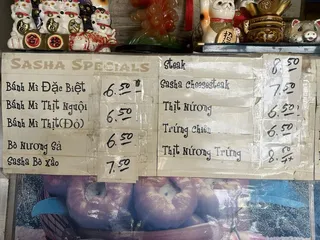 Sasha Specials
Bánh Mì Đặc Biệt 6.50
Bánh Mì Thịt Nguội 6.50
Bánh Mì Thịt (Đỏ) 6.50
Bò Nướng Sả 6.50
Sasha Bò Xào 7.50
Steak 8.50
Sasha Cheesesteak 7.50
Thịt Nướng 6.50
Trứng Chiên 6.50
Thịt Nướng Trứng 8.50